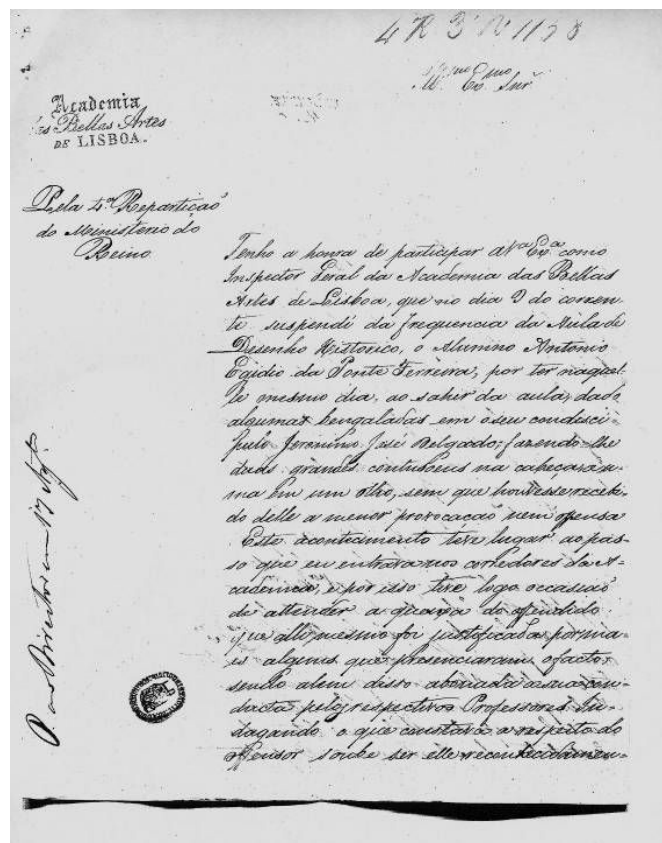 4 R 3ª Nº 1158
Illmo Exmo Snr
Academia
das Bellas Artes
DE LISBOA.
Pela 4ª Repartição
do Ministerio do
Reino
Tenho a honra de participar a Vª Exª como
Inspector Geral da Academia das Bellas
Artes de Lisboa, que no dia 9 do corren-
te suspendi da frequencia da Aula de
Desenho Historico, o Alumno Antonio
Egidio da Ponte Ferreira, por ter naquel-
le mesmo dia, ao sahir da aula, dado
algumas bengaladas em o seu condesci-
pulo Jeronimo José Delgado, fazendo-lhe
duas grandes contusoens na cabeça, e u-
ma em um olho, sem que houvesse recebi-
do delle a menor provocação nem offensa
Este acontecimento teve lugar ao pas-
so que eu entrava nos corredores da A-
cademia, e por isso tive logo occasião
de attender a queixa do offendido
que alli mesmo foi justificada por ma-
is alguns que presenciaram o facto,
sendo alem disto abonada a sua con-
ducta pelos respectivos Professores. In-
dagando o que constava a respeito do
offensor soube ser elle reconhecidamen-
P. ao Director em 17 Agto